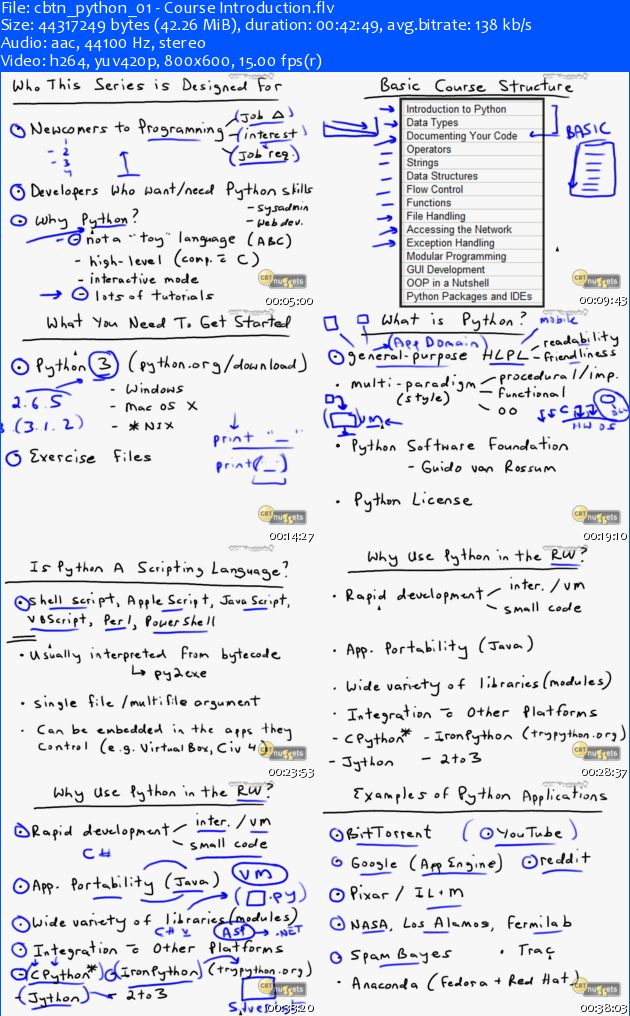 File: cbtn_python_01 - Course Introduction.flv
Size: 44317249 bytes (42.26 MiB), duration: 00:42:49, avg.bitrate: 138 kb/s
Audio: aac, 44100 Hz, stereo
Video: h264, yuv420p, 800x600, 15.00 fps(r)
Who This Series is Designed For
Newcomers to Programming
Job Δ
interest
Job req.
1
- 2
- 3
4
Developers who want/need Python skills
- sysadmin
- web dev.
Why Python?
not a "toy" language (ABC)
- high-level (comp. C)
- interactive mode
lots of tutorials
CBT nuggets
00:05:00
Basic Course Structure
Introduction to Python
Data Types
Documenting Your Code
Operators
Strings
Data Structures
Flow Control
Functions
File Handling
Accessing the Network
Exception Handling
Modular Programming
GUI Development
OOP in a Nutshell
Python Packages and IDEs
BASIC
CBT nuggets
00:09:43
What You Need To Get Started
Python 3 (python.org/download)
- Windows
- Mac OS X
- *NIX
2.6.5
(3.1.2)
print "_"
print(_)
Exercise files
CBT nuggets
00:14:27
What is Python?
mobile
(App Domain)
general-purpose HLPL
readability
friendliness
• multi-paradigm
(style)
procedural/imp.
functional
OO
VM
HW OS
• Python Software Foundation
- Guido van Rossum
• Python License
CBT nuggets
00:19:10
Is Python A Scripting Language?
shell script, AppleScript, JavaScript,
VBScript, Perl, PowerShell
• Usually interpreted from bytecode
py2exe
• single file/multifile argument
• Can be embedded in the apps they
control (e.g. VirtualBox, Civ 4)
CBT nuggets
00:23:53
Why Use Python in the RW?
• Rapid development
inter. / vm
small code
• App. Portability (Java)
• Wide variety of libraries (modules)
• Integration Other Platforms
- CPython* - IronPython (trypython.org)
- Jython - 2to3
CBT nuggets
00:28:37
Why Use Python in the RW?
Rapid development
inter. / vm
small code
C#
App. Portability (Java)
VM
.py
Wide variety of libraries (modules)
C#
ASP
.NET
Integration Other Platforms
CPython* IronPython (trypython.org)
Jython - 2to3
CBT nuggets
Examples of Python Applications
BitTorrent (YouTube)
Google (App Engine) reddit
Pixar / IL+M
NASA, Los Alamos, Fermilab
SpamBayes • Trac
• Anaconda (Fedora + Red Hat)
CBT nuggets
00:38:03